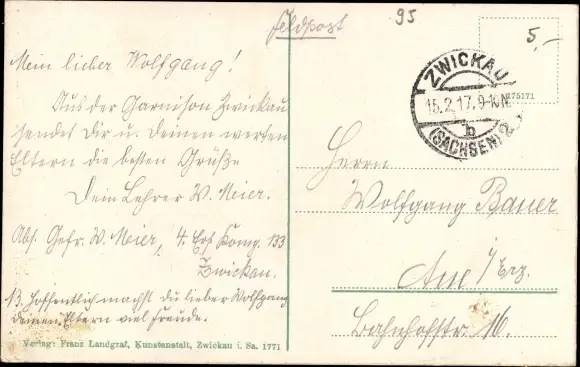 Feldpost
95
5,-
ZWICKAU
15.2.17. 9-10N.
b
(SACHSEN) 2
75171
Mein lieber Wolfgang!
Aus der Garnison Zwickau
sendet Dir u. Deinen werten
Eltern die besten Grüße
Dein Lehrer W. Meier.
Abs. Gefr. W. Meier, 4. Ers Komp. 133
Zwickau.
NB. Hoffentlich machst Du lieber Wolfgang
deinen Eltern viel Freude.
Herrn
Wolfgang Bauer
Aue i/Erz.
Bahnhofstr. 16.
Verlag: Franz Landgraf, Kunstanstalt, Zwickau i. Sa. 1771